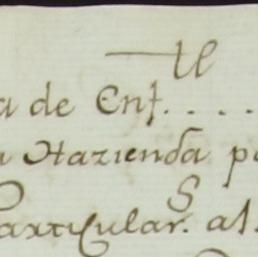 a de Enf....
Hazienda p
articular. al.